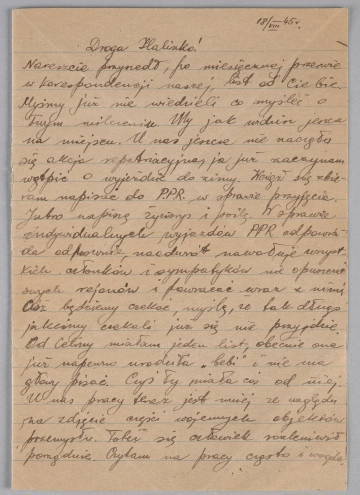 18/VIII 45r.
Droga Halinko!
Nareszcie przyszedł, po miesięcznej przerwie
w korespondencji naszej, list od Ciebie.
Myśmy już nie wiedzieli co myśleć o
Twym milczeniu. My jak widzisz jeszcze
na miejscu. U nas jeszcze nie zaczęła
się akcja repatriacyjna, ja już zaczynam
wątpić o wyjeździe do zimy. Wciąż się zbie-
ram napisać do P.P.R. w sprawie przyjęcia.
Jutro napiszę życiorys i W sprawie
indywidualnych wyjazdów PPR odpowia-
da odmownie nawołuje wszyst-
kich członków i sympatyków nie opuszcz
swych rejonów i powracać wraz z nimi
będziemy czekać, myślę, że tak długo
jakeśmy czekali już się nie przyjdzie.
Od Celiny miałam jeden list, obecnie ona
już napewno urodziła "bebi" i nie ma
głowy pisać. Czyś Ty miała coś od niej.
U nas pracy teraz jest mniej ze względu
na zdjęcie części wojennych objektów
przemysłu. Toteż się człowiek rozleniwił
porządnie. Czytam na pracy często i